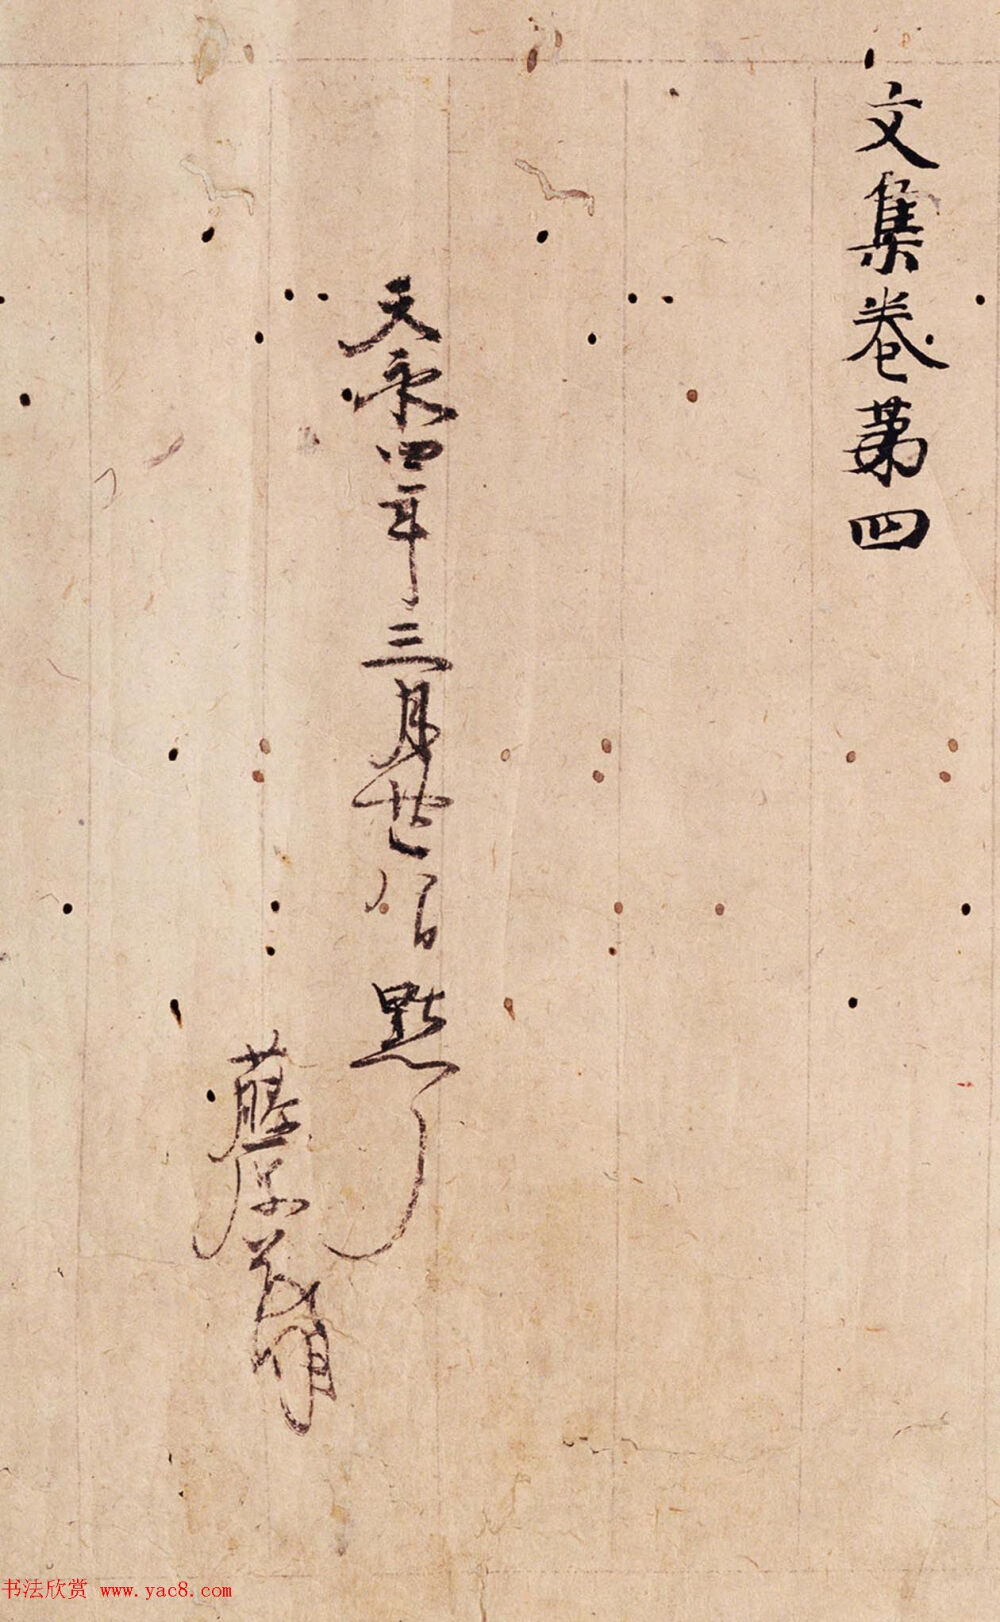 文集卷第四
天永四年三月廿八日點了
藤原茂明
书法欣赏 www.yac8.com